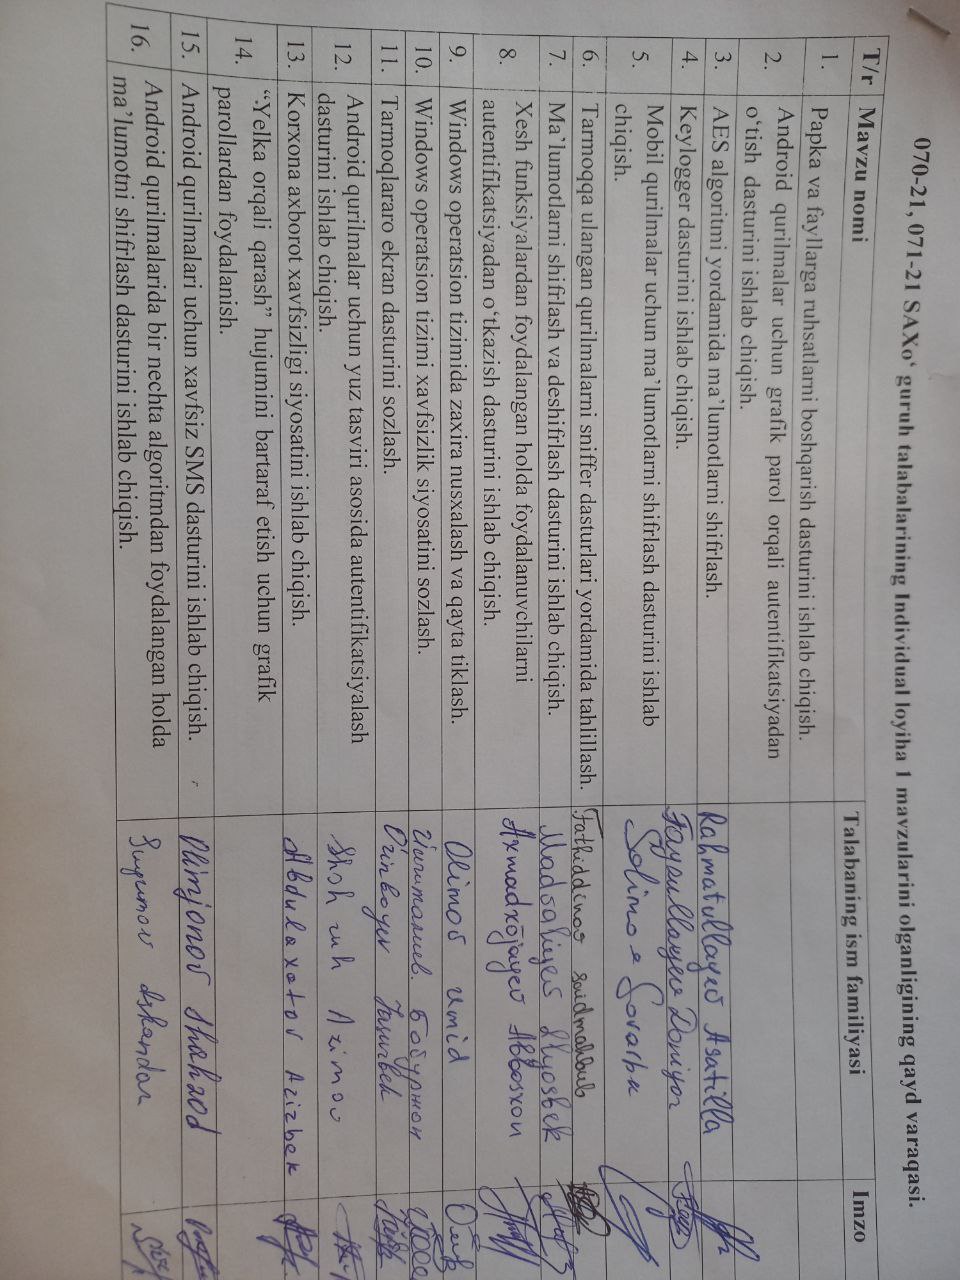 070-21, 071-21 SAXo‘ guruh talabalarining Individual loyiha 1 mavzularini olganligining qayd varaqasi.
T/r Mavzu nomi Talabaning ism familiyasi Imzo
1. Papka va fayllarga ruhsatlarni boshqarish dasturini ishlab chiqish.
2. Android qurilmalar uchun grafik parol orqali autentifikatsiyadan
o‘tish dasturini ishlab chiqish.
3. AES algoritmi yordamida ma’lumotlarni shifrlash. Rahmatullayev Asatilla
4. Keylogger dasturini ishlab chiqish. Fayzullayev Doniyor
5. Mobil qurilmalar uchun ma’lumotlarni shifrlash dasturini ishlab
chiqish.
6. Tarmoqqa ulangan qurilmalarni sniffer dasturlari yordamida tahlillash. Fathiddinov Saidmahbub
7. Ma’lumotlarni shifrlash va deshifrlash dasturini ishlab chiqish. Madaliyev Ilyosbek
8. Xesh funksiyalardan foydalangan holda foydalanuvchilarni
autentifikatsiyadan o‘tkazish dasturini ishlab chiqish. Axmadxo‘jayev Abbosxon
9. Windows operatsion tizimida zaxira nusxalash va qayta tiklash. Olimov Umid
10. Windows operatsion tizimi xavfsizlik siyosatini sozlash. Бобуржон
11. Tarmoqlararo ekran dasturini sozlash. O‘rinboyev Jasurbek
12. Android qurilmalar uchun yuz tasviri asosida autentifikatsiyalash
dasturini ishlab chiqish. Shohruh Azimov
13. Korxona axborot xavfsizligi siyosatini ishlab chiqish. Abdulaxatov Azizbek
14. “Yelka orqali qarash” hujumini bartaraf etish uchun grafik
parollardan foydalanish.
15. Android qurilmalari uchun xavfsiz SMS dasturini ishlab chiqish. Olimjonov Shahzod
16. Android qurilmalarida bir nechta algoritmdan foydalangan holda
ma’lumotni shifrlash dasturini ishlab chiqish. Iskandar